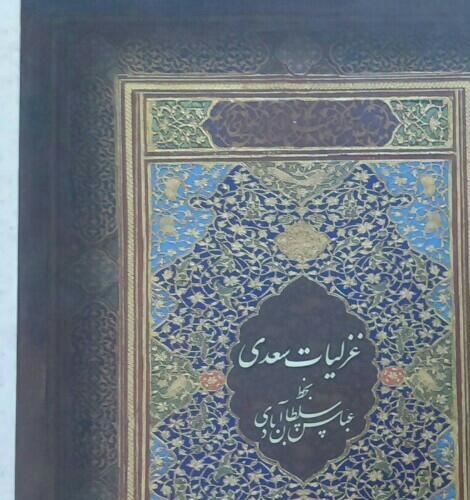 غزلیات سعدی
بخط
عباس سلطان‌آبادی